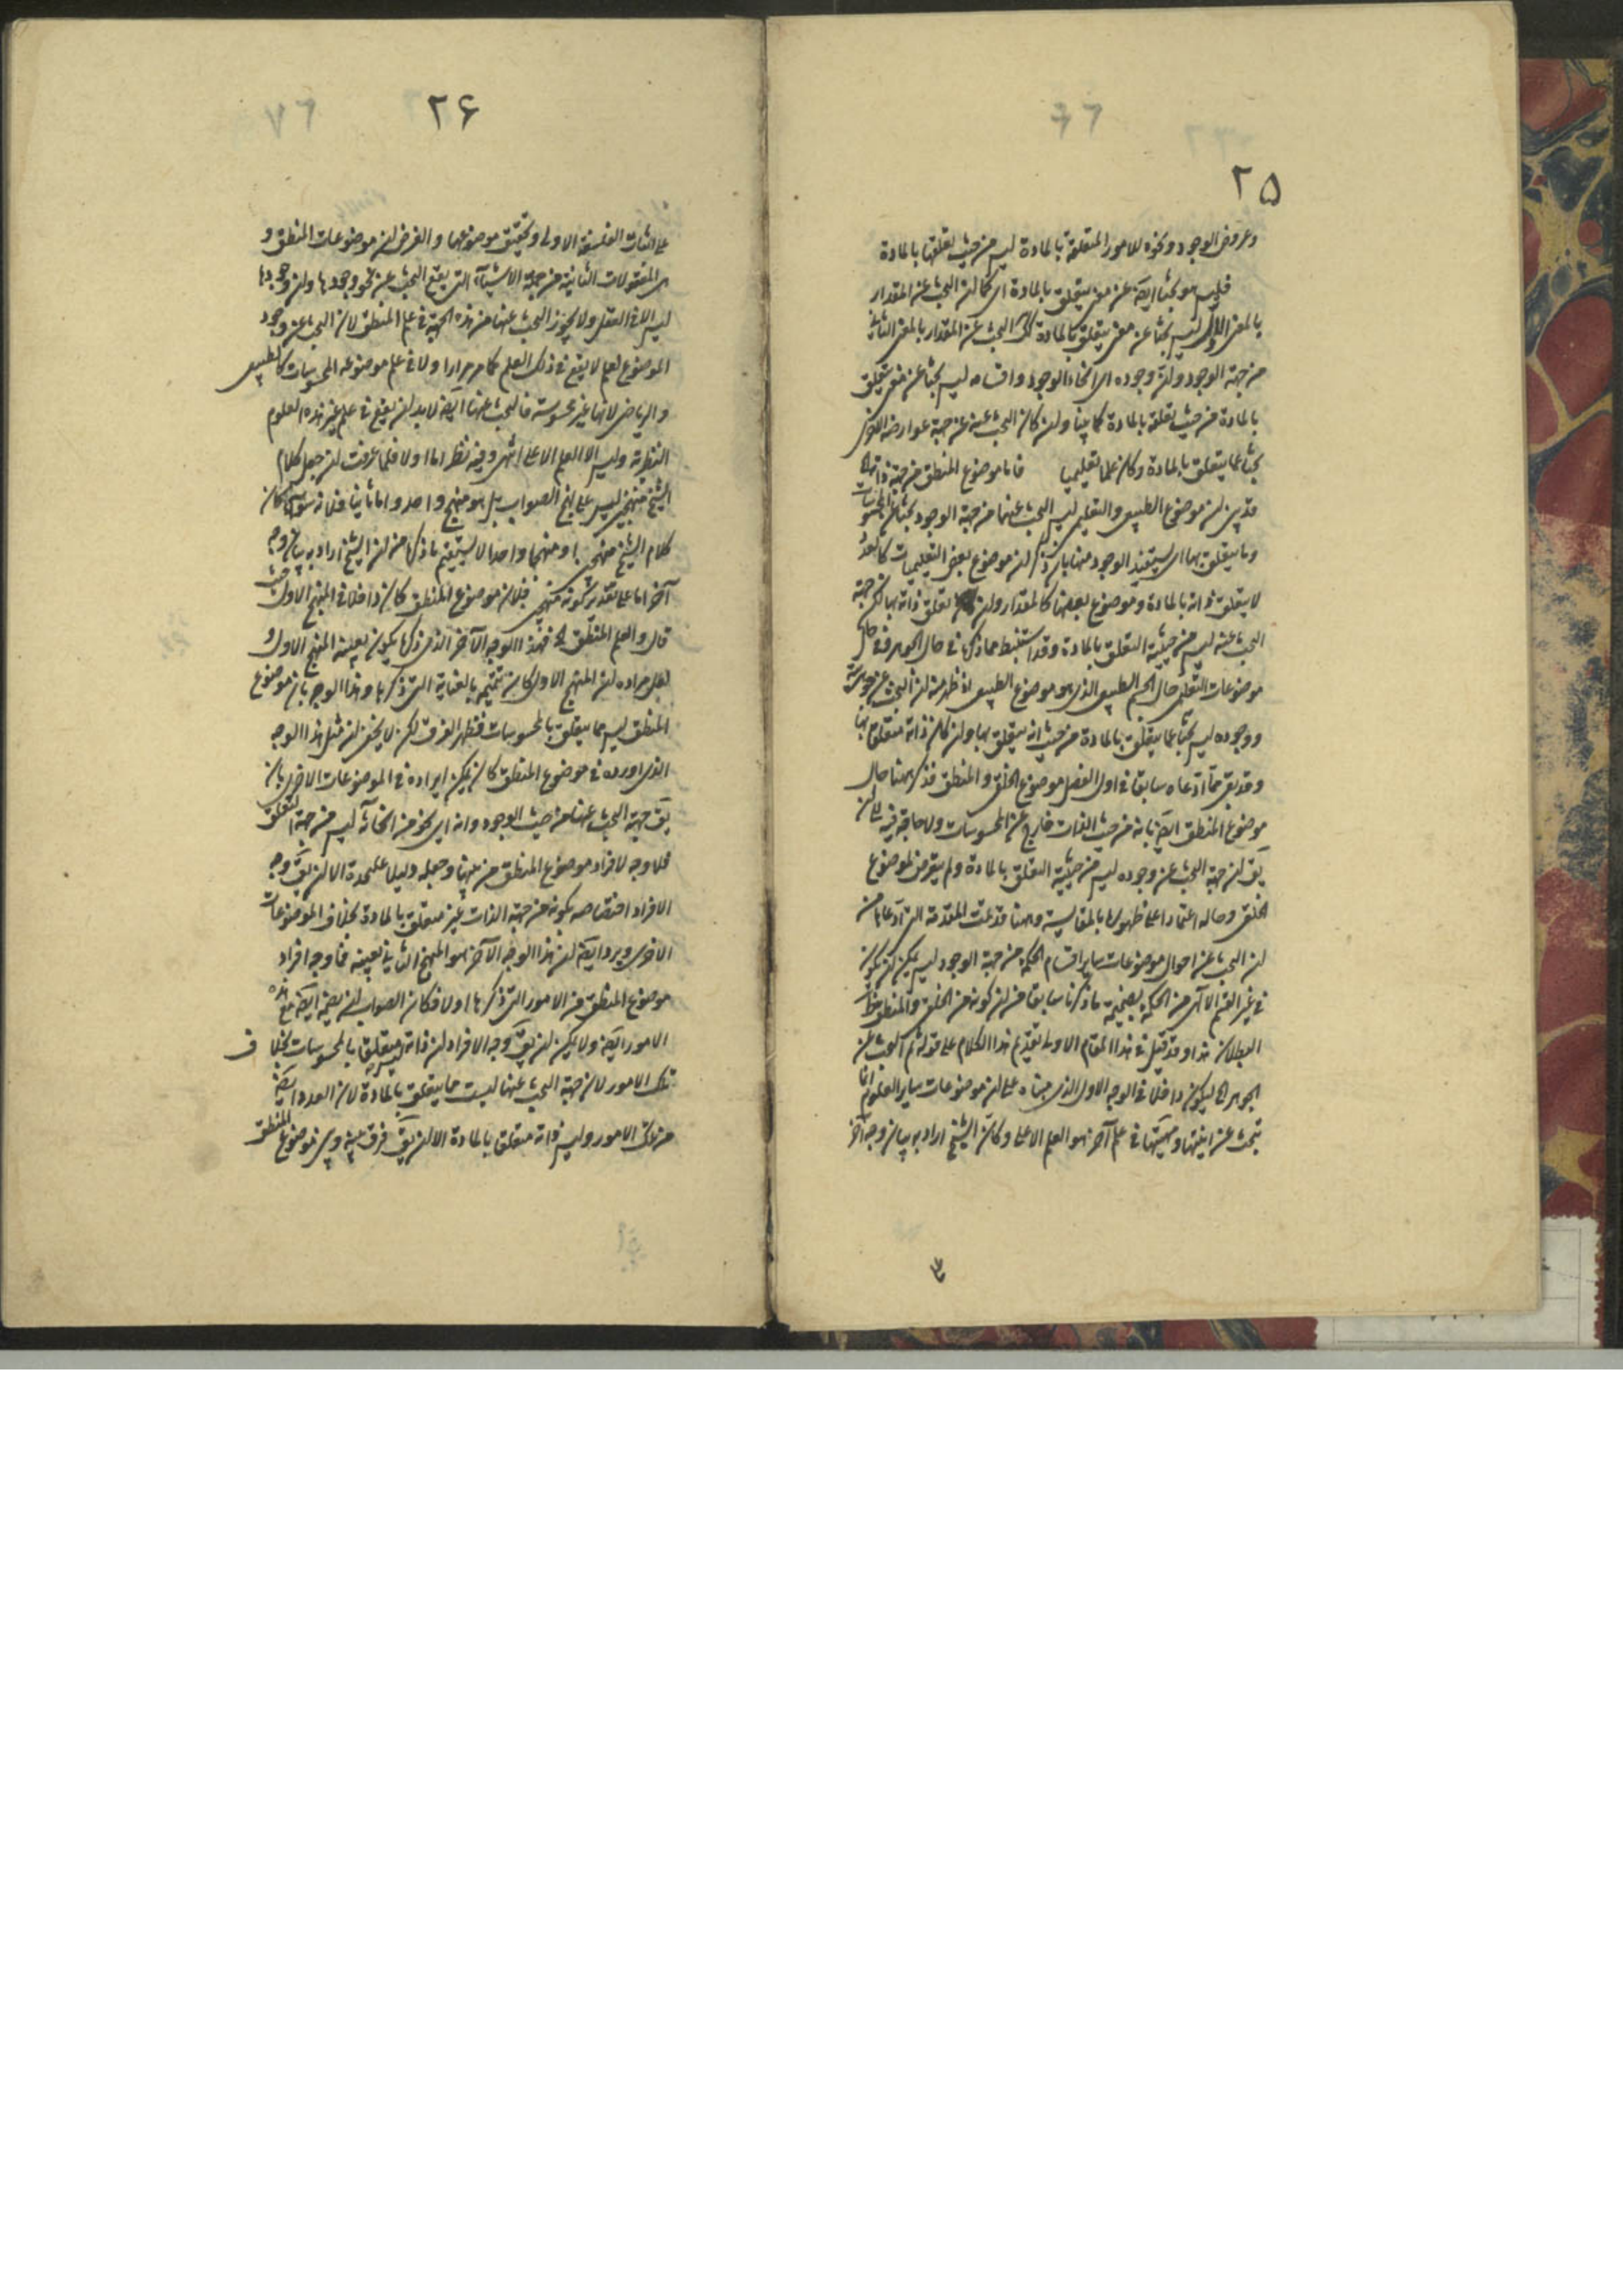 ٢۵
وعروض الوجود ونحوه للامور المتعلقة بالمادة ليس من حيث تعلقها بالمادة
فليس هو بحثا ايضا عن معنى يتعلق بالمادة اى كما ان البحث عن المقدار
بالمعنى الاول ليس بحثا عن معنى يتعلق بالمادة كك البحث عن المقدار بالمعنى الثانى
من جهة الوجود وان وجوده اى انحاء الوجود واقسامه ليس بحثا عن معنى يتعلق
بالمادة من حيث تعلقه بالمادة كما بينا وان كان البحث عنه من جهة عوارضه الاخرى
بحثا عما يتعلق بالمادة وكان علما تعليميا فاما موضوع المنطق من جهة ذاته اه
قد بين ان موضوع الطبيعى والتعليمى ليس البحث عنهما من جهة الوجود بحثا عن المحسوسات
وما يتعلق بها اى يستفيد الوجود منها بان ذكر ان موضوع بعض التعليميات كالعدد
لا يتعلق ذاته بالمادة وموضوع بعضها كالمقدار وان تعلق ذاته بها لكن جهة
البحث عنه ليس من حيثية التعلق بالمادة وقد استنبط مما ذكرنا فى حال الجوهر وفى حال
موضوعات التعليمى حال الجسم الطبيعى الذى هو موضوع الطبيعى اذ ظهر منه ان البحث عن جوهريته
ووجوده ليس بحثا عما يتعلق بالمادة من حيث انه يتعلق بها وان كان ذاته متعلقا بها
وقد بقى مما ادعاه سابقا فى اول الفصل موضوع الخلق والمنطق فذكر ههنا حال
موضوع المنطق ايضا بانه من حيث الذات خارج عن المحسوسات ولا حاجة فيه الى ان
يق ان جهة البحث عن وجوده ليس من حيثية التعلق بالمادة ولم يتعرض لموضوع
الخلق وحاله اعتمادا على ظهورها بالمقايسة وههنا قد تمت المقدمة التى ادعاها من
ان البحث عن احوال موضوعات ساير اقسام الحكمة من جهة الوجود ليس يمكن ان يكون
فى غير القسم الالهى من الحكمة بضميمة ما ذكرنا سابقا من ان كونه من الخلق والمنطق ظاهر
البطلان هذا وقد قيل فى هذا المقام الاولى تقديم هذا الكلام على قوله ثم البحث عن
الجوهر اه ليكون داخلا فى الوجه الاول الذى مبناه على ان موضوعات ساير العلوم انما
تبحث عن انيتها ومهيتها فى علم آخر هو العلم الاعلى وكان الشيخ اراد به بيان وجه آخر
٢۶
على اثبات الفلسفة الاولى وتحقيق موضوعها والغرض ان موضوعات المنطق و
هى المعقولات الثانية من جملة الاشياء التى يقع البحث عن نحو وجودها وان وجودها
ليس الا فى العقل ولا يجوز البحث عنها من هذه الجهة فى علم المنطق لان البحث عن وجود
الموضوع لعلم لا يقع فى ذلك العلم كما مر مرارا ولا فى علم موضوعه المحسوسات كالطبيعى
والرياضى لانها غير محسوسة فالبحث عنها ايضا لابد ان يقع فى علم غير هذه العلوم
النظرية وليس الا العلم الاعلى انتهى وفيه نظر اما اولا فلما عرفت ان جعل كلام
الشيخ منهجين ليس على نهج الصواب بل هو منهج واحد واما ثانيا فلانه سواء كان
كلام الشيخ منهجين او منهجا واحدا لا يستقيم ما ذكره من ان الشيخ اراد به بيان وجه
آخر اما على تقدير كونه منهجين فلان موضوع المنطق كان داخلا فى المنهج الاول حيث
قال والعلم المنطقى اه فهذا الوجه الآخر الذى ذكره يكون بعينه المنهج الاول و
لعل مراده ان المنهج الاول كان تتميمه بالعناية التى ذكرها وهذا الوجه بان موضوع
المنطق ليس مما يتعلق بالمحسوسات فظهر الفرق لكن لا يخفى ان مثل هذا الوجه
الذى اورده فى موضوع المنطق كان يمكن ايراده فى الموضوعات الاخرى بان
يق جهة البحث عنها من حيث الوجود وانه اى نحو من انحائه ليس من جهة التعلق
فلا وجه لافراد موضوع المنطق من بينها وجعله دليلا عليحدة الا ان يق وجه
الافراد اختصاصه بكونه من جهة الذات غير متعلق بالمادة بخلاف الموضوعات
الاخرى ويرد ايضا ان هذا الوجه الآخر هو المنهج الثانى بعينه فما وجه افراد
موضوع المنطق من الامور التى ذكرها اولا فكان الصواب ان يضمه ايضا مع هذه
الامور ايضا ولا يمكن ان يق وجه الافراد ان ذاته ليس متعلقا بالمحسوسات بخلاف
تلك الامور لان جهة البحث عنها ليست مما يتعلق بالمادة لان العدد ايضا
من تلك الامور وليس ذاته متعلق بالمادة الا ان يق فرق بينه وبين موضوع المنطق